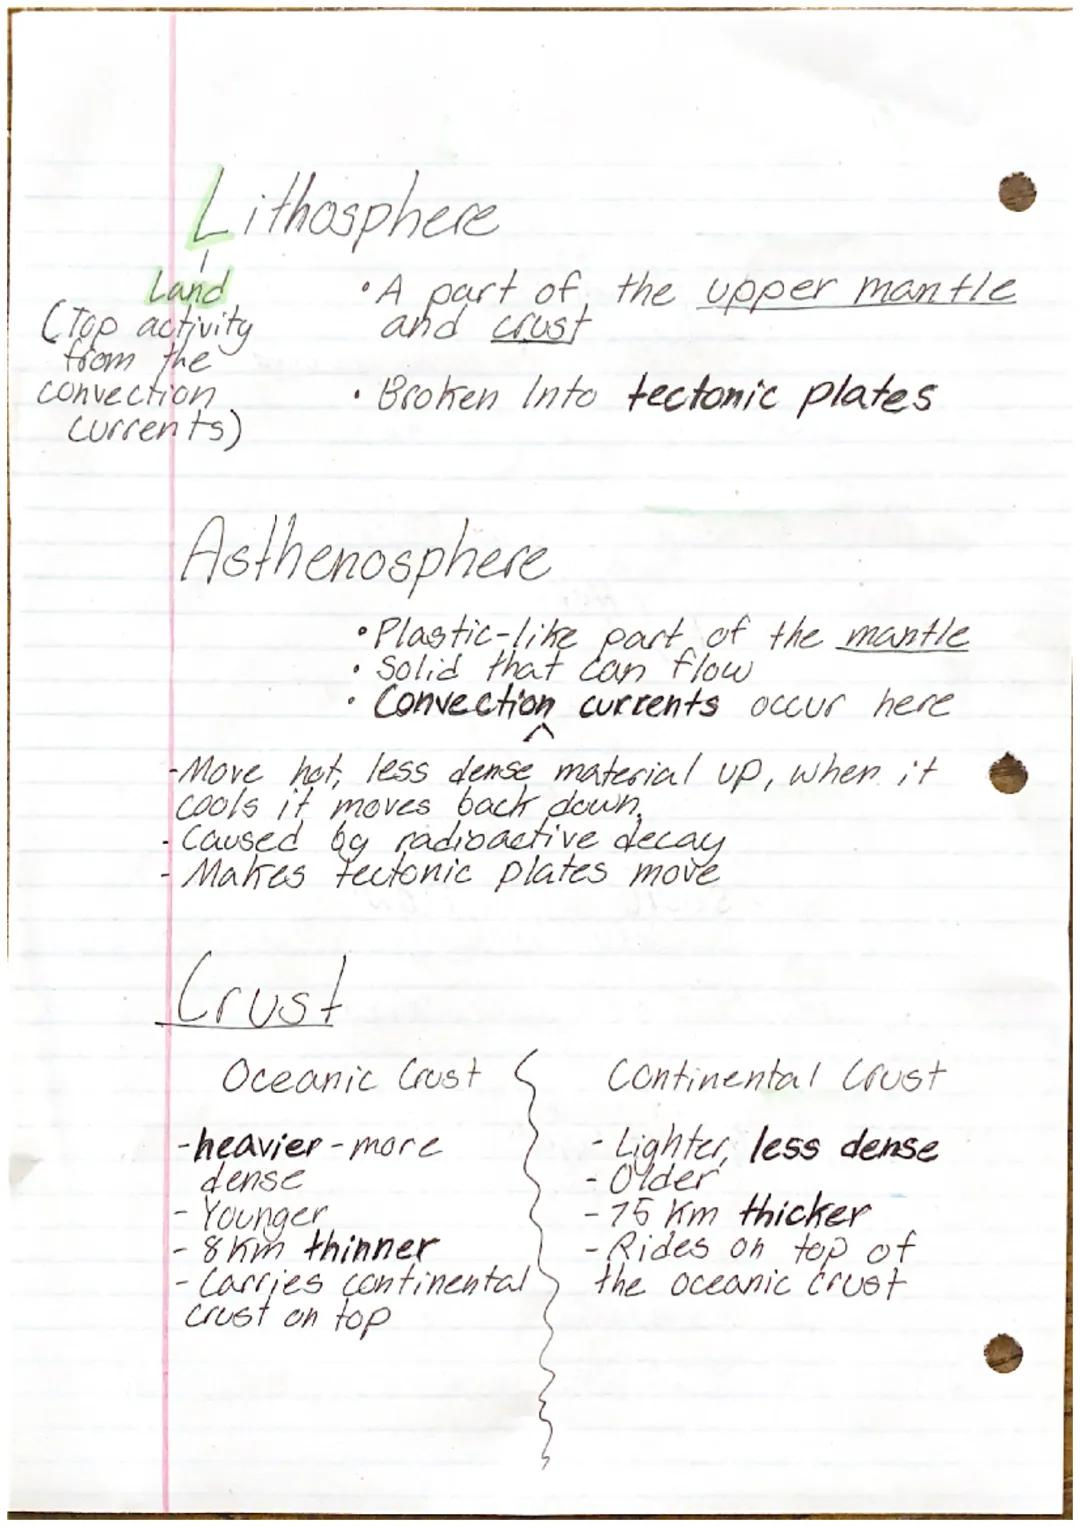 Lithosphere
Land
(Top activity
from the
convection
currents)
• A part of the upper mantle
and crust
• Broken Into tectonic plates
Asthenosphere
• Plastic-like part of the mantle
• Solid that can flow
• Convection currents occur here
^
-Move hot, less dense material up, when it
cools it moves back down.
- Caused by radioactive decay
- Makes tectonic plates move
Crust
Oceanic Crust
-heavier - more
dense
- Younger
- 8 Km thinner
- Carries continental
crust on top
Continental Crust
- Lighter, less dense
- Older
- 75 Km thicker
- Rides on top of
the oceanic crust